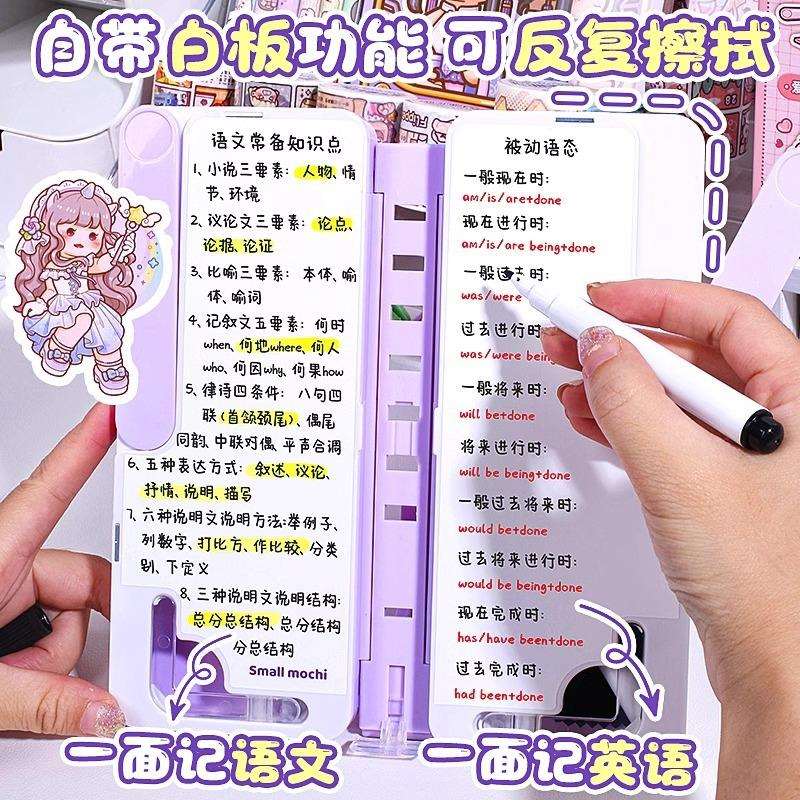 自带白板功能 可反复擦拭
语文常备知识点
1、小说三要素：人物、情
节、环境
2、议论文三要素：论点、
论据、论证
3、比喻三要素：本体、喻
体、喻词
4、记叙文五要素：何时
when、何地where、何人
who、何因why、何果how
5、律诗四条件：八句四
联(首颔颈尾)、偶尾
同韵、中联对偶、平声合调
6、五种表达方式：叙述、议论、
抒情、说明、描写
7、六种说明文说明方法:举例子、
列数字、打比方、作比较、分类
别、下定义
8、三种说明文说明结构：
总分总结构、总分结构
分总结构
Small mochi
被动语态
一般现在时：
am/is/are+done
现在进行时：
am/is/are being+done
一般过去时：
was/were
过去进行时：
was/were being
一般将来时：
will be+done
将来进行时：
will be being+done
一般过去将来时：
would be+done
过去将来进行时：
would be being+done
现在完成时：
has/have been+done
过去完成时：
had been+done
一面记语文
一面记英语